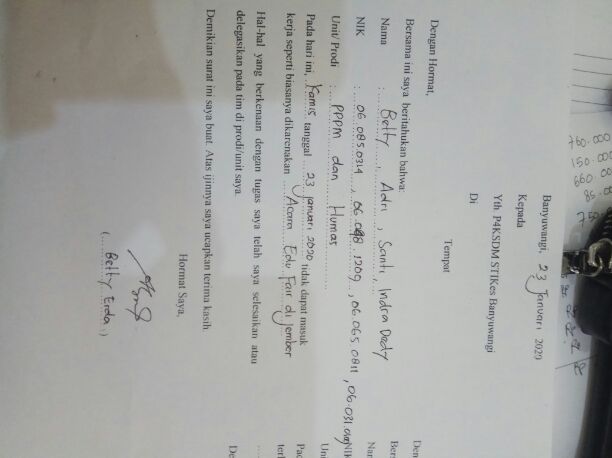 Banyuwangi, 23 Januari 2020
Kepada
Yth P4KSDM STIKes Banyuwangi
Di
Tempat
Dengan Hormat,
Bersama ini saya beritahukan bahwa:
Nama : Betty, Adri, Santi, Indra Dedy
NIK : 06.085.0314, 06.098.1209, 06.065.0811, 06.031.
Unit/ Prodi : PPPM dan Humas
Pada hari ini, Kamis tanggal 23 januari 2020 tidak dapat masuk
kerja seperti biasanya dikarenakan Acara Edu Fair di jember
Hal-hal yang berkenaan dengan tugas saya telah saya selesaikan atau
delegasikan pada tim di prodi/unit saya.
Demikian surat ini saya buat. Atas ijinnya saya ucapkan terima kasih
Hormat Saya,
( Betty Erda )
760.000
150.000
660.00
85.0